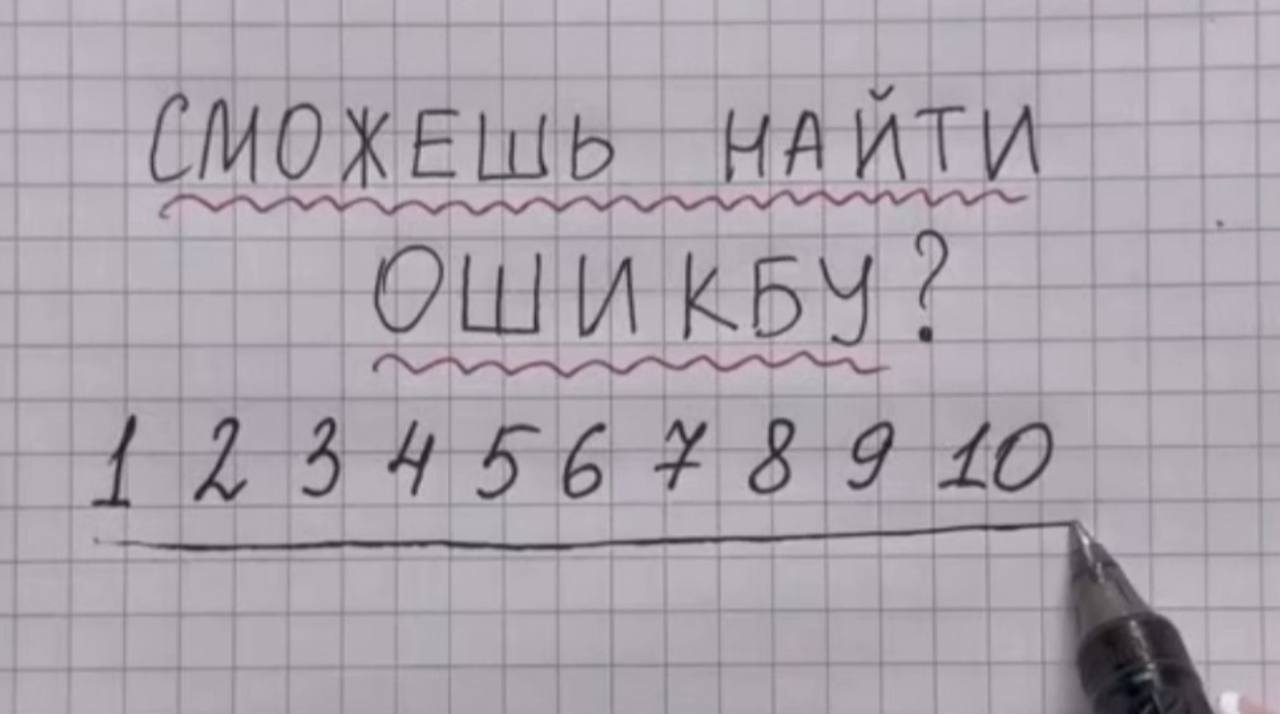 СМОЖЕШЬ НАЙТИ
ОШИКБУ?
1 2 3 4 5 6 7 8 9 10